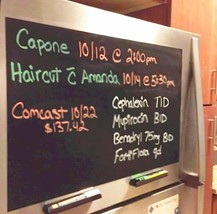 Capone 10/12 @ 2:00pm
Haircut c̄ Amanda 10/14 @ 5:30pm
Comcast 10/22
$137.42
Cephalexin TID
Mupirocin BID
Benadryl 75mg BID
FortiFlora qd